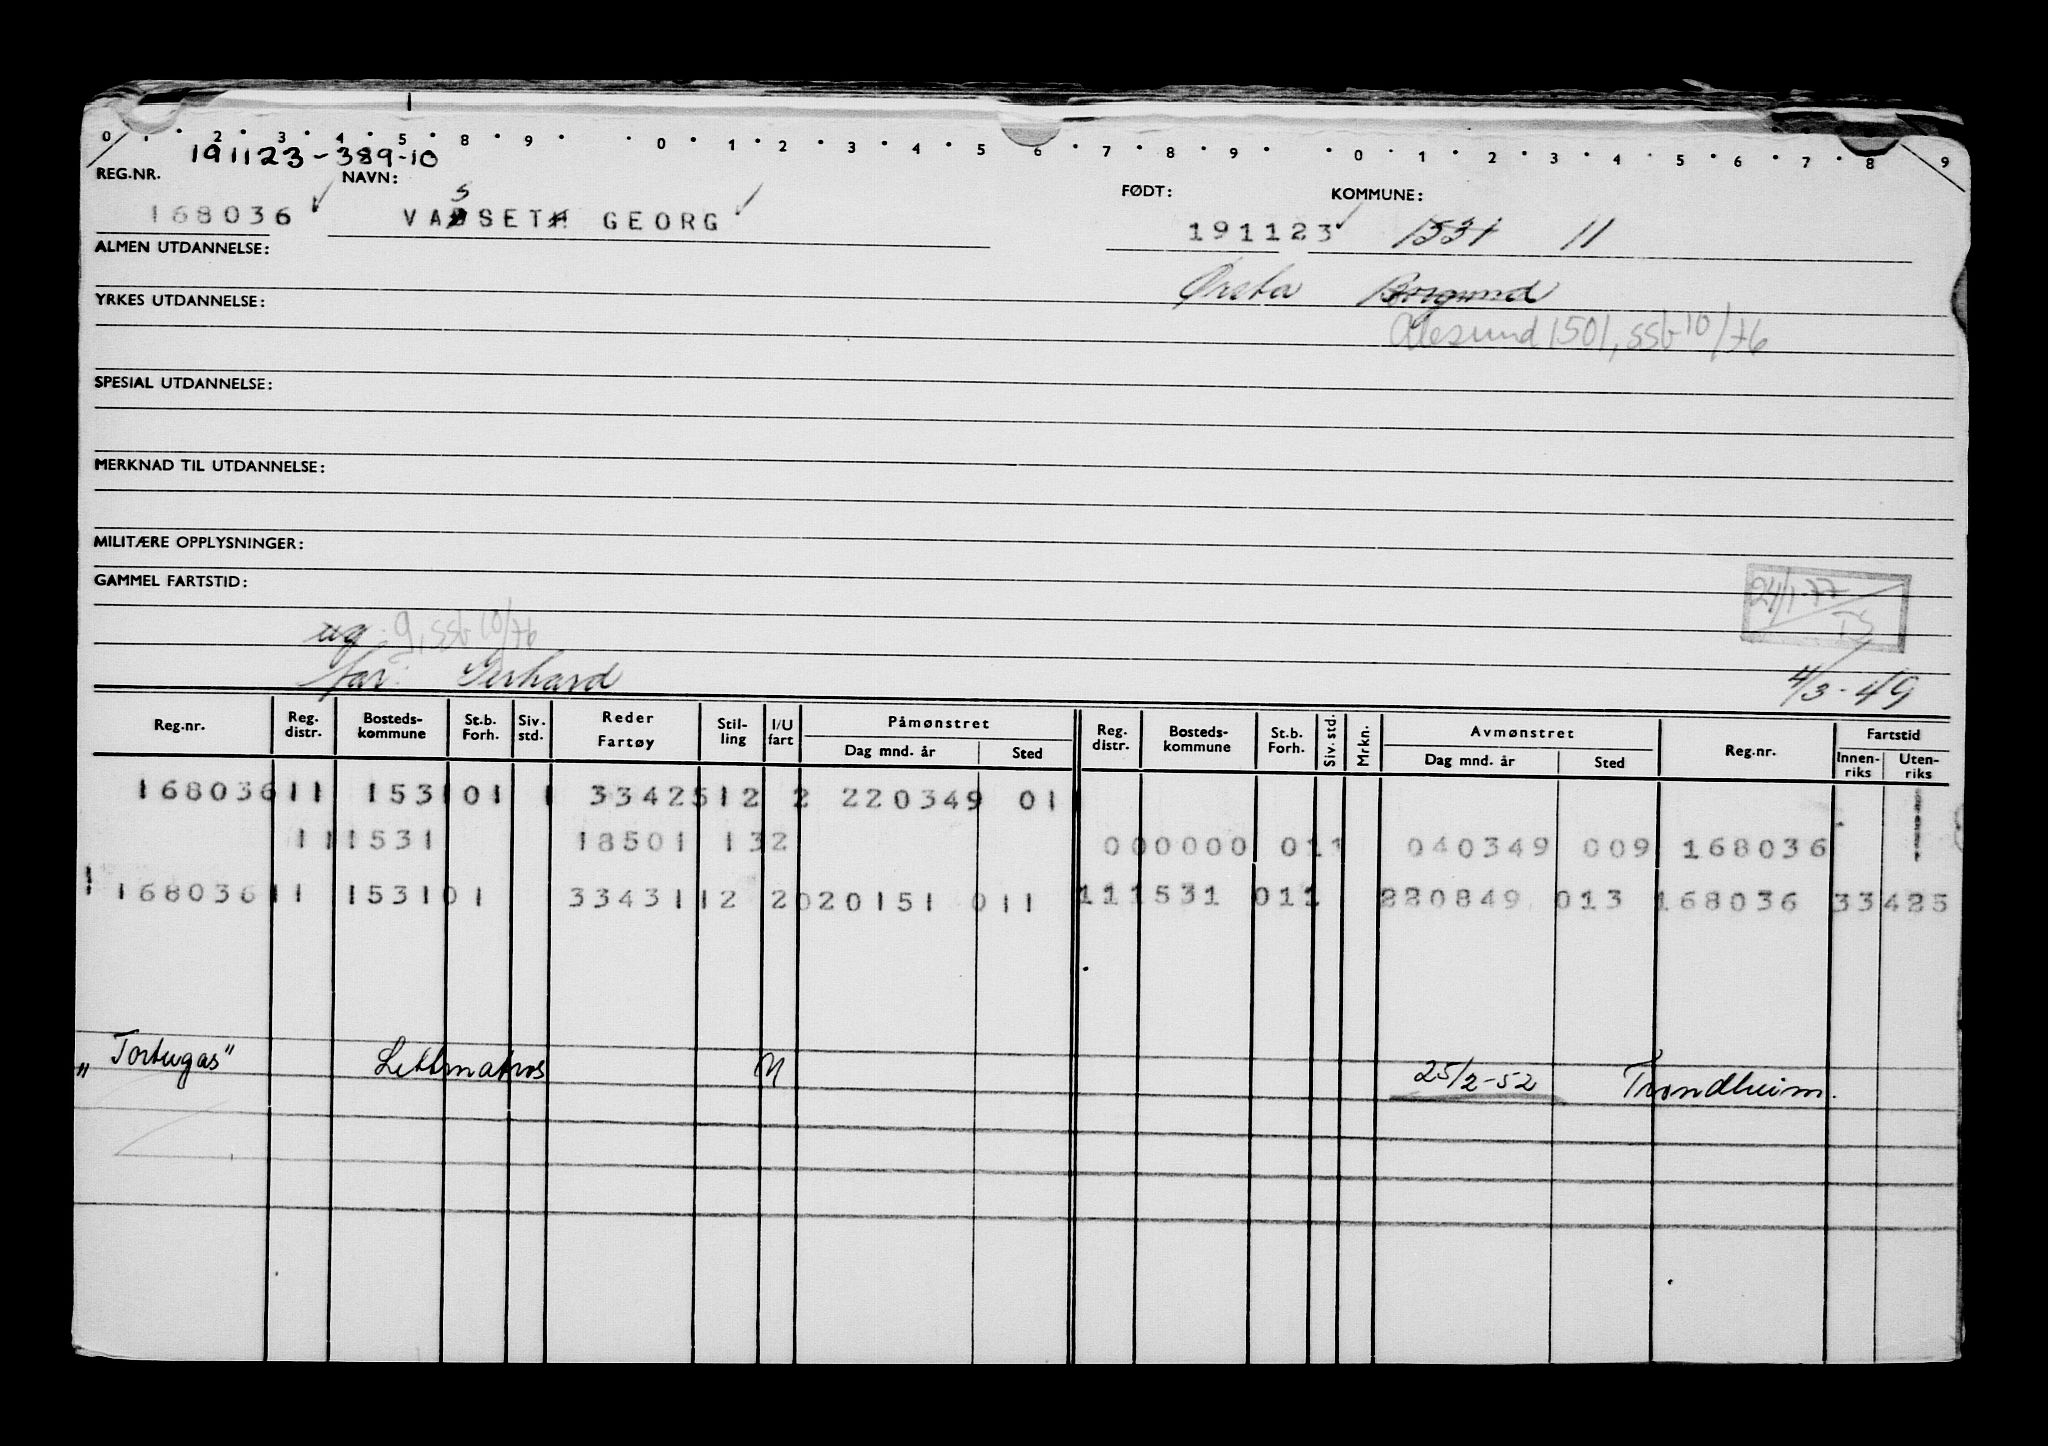 0 · 2 · 3 · 4 · 5 · 8 · 9 · · 0 · 1 · 2 · 3 · 4 · 5 · 6 · 7 · 8 · 9 · · 0 · 1 · 2 · 3 · 4 · 5 · 6 · 7 · 8 9
191123-389-10
REG.NR. NAVN: FØDT: KOMMUNE:
S
168036 VADSETH GEORG 191123 1531 11
ALMEN UTDANNELSE:
Ørsta Borgund
YRKES UTDANNELSE:
Ålesund 1501, SSb 10/76
SPESIAL UTDANNELSE:
MERKNAD TIL UTDANNELSE:
MILITÆRE OPPLYSNINGER:
GAMMEL FARTSTID:
24/1-77
TS
ug. g, SSb 10/76
far: Gerhard 4/3-49
Reg.nr. Reg. distr. Bosteds-kommune St.b. Forh. Siv. std. Reder Fartøy Stil-ling I/U fart Påmønstret Dag mnd. år Sted Reg. distr. Bosteds-kommune St.b. Forh. Siv. std. Mrkn. Avmønstret Dag mnd. år Sted Reg.nr. Fartstid Innen-riks Uten-riks
168036 11 1531 01 1 33425 12 2 220349 01
11 1531 18501 132 000000 011 040349 009 168036
168036 11 1531 01 33431 12 2 020151 011 111531 011 220849 013 168036 33425
"Tortugas" Lettmatros U 25/2-52 Trondheim.